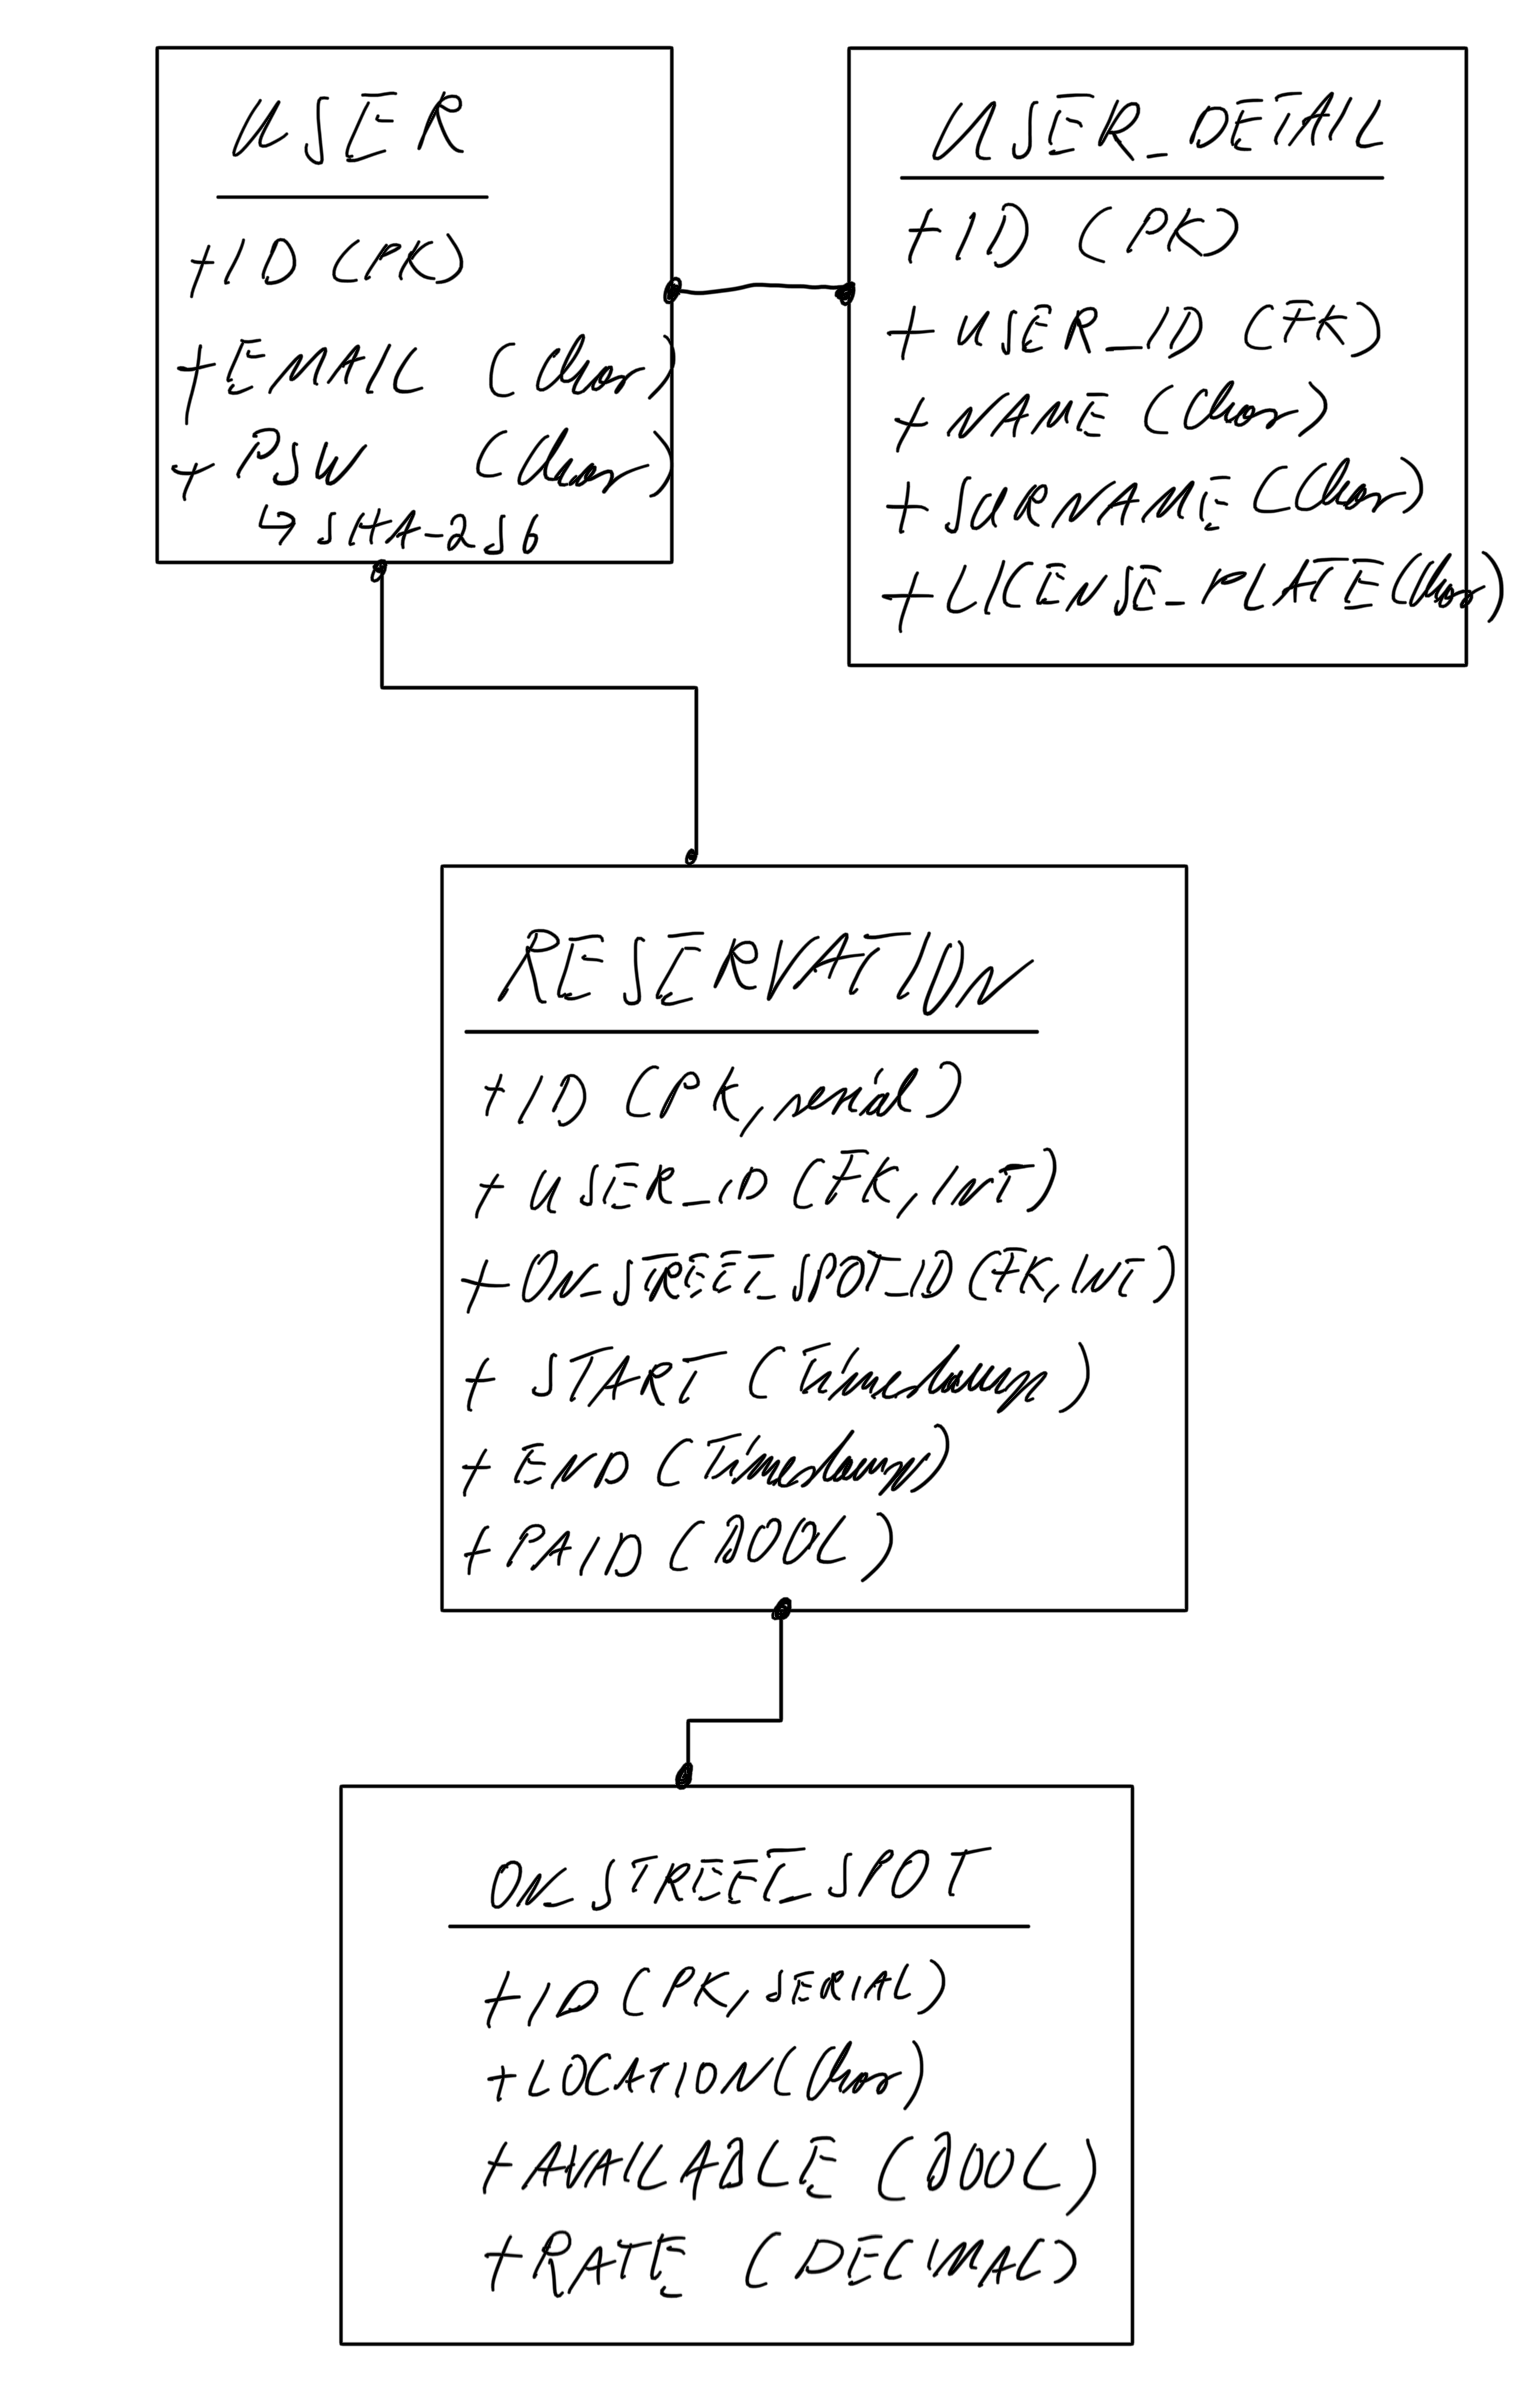 USER
+ ID (PK)
+ EMAIL (Char)
+ PSW (Char)
↳ SHA-256
USER_DETAIL
+ ID (PK)
+ USER_ID (FK)
+ NAME (Char)
+ SURNAME (Char)
+ LICENSE_PLATE (Char)
RESERVATION
+ ID (PK, serial)
+ USER_ID (FK, INT)
+ ON_STREET_SPOT_ID (FK, INT)
+ START (Timestamp)
+ END (Timestamp)
+ PAID (BOOL)
ON_STREET_SPOT
+ ID (PK, SERIAL)
+ LOCATION (Char)
+ AVAILABLE (BOOL)
+ RATE (DECIMAL)